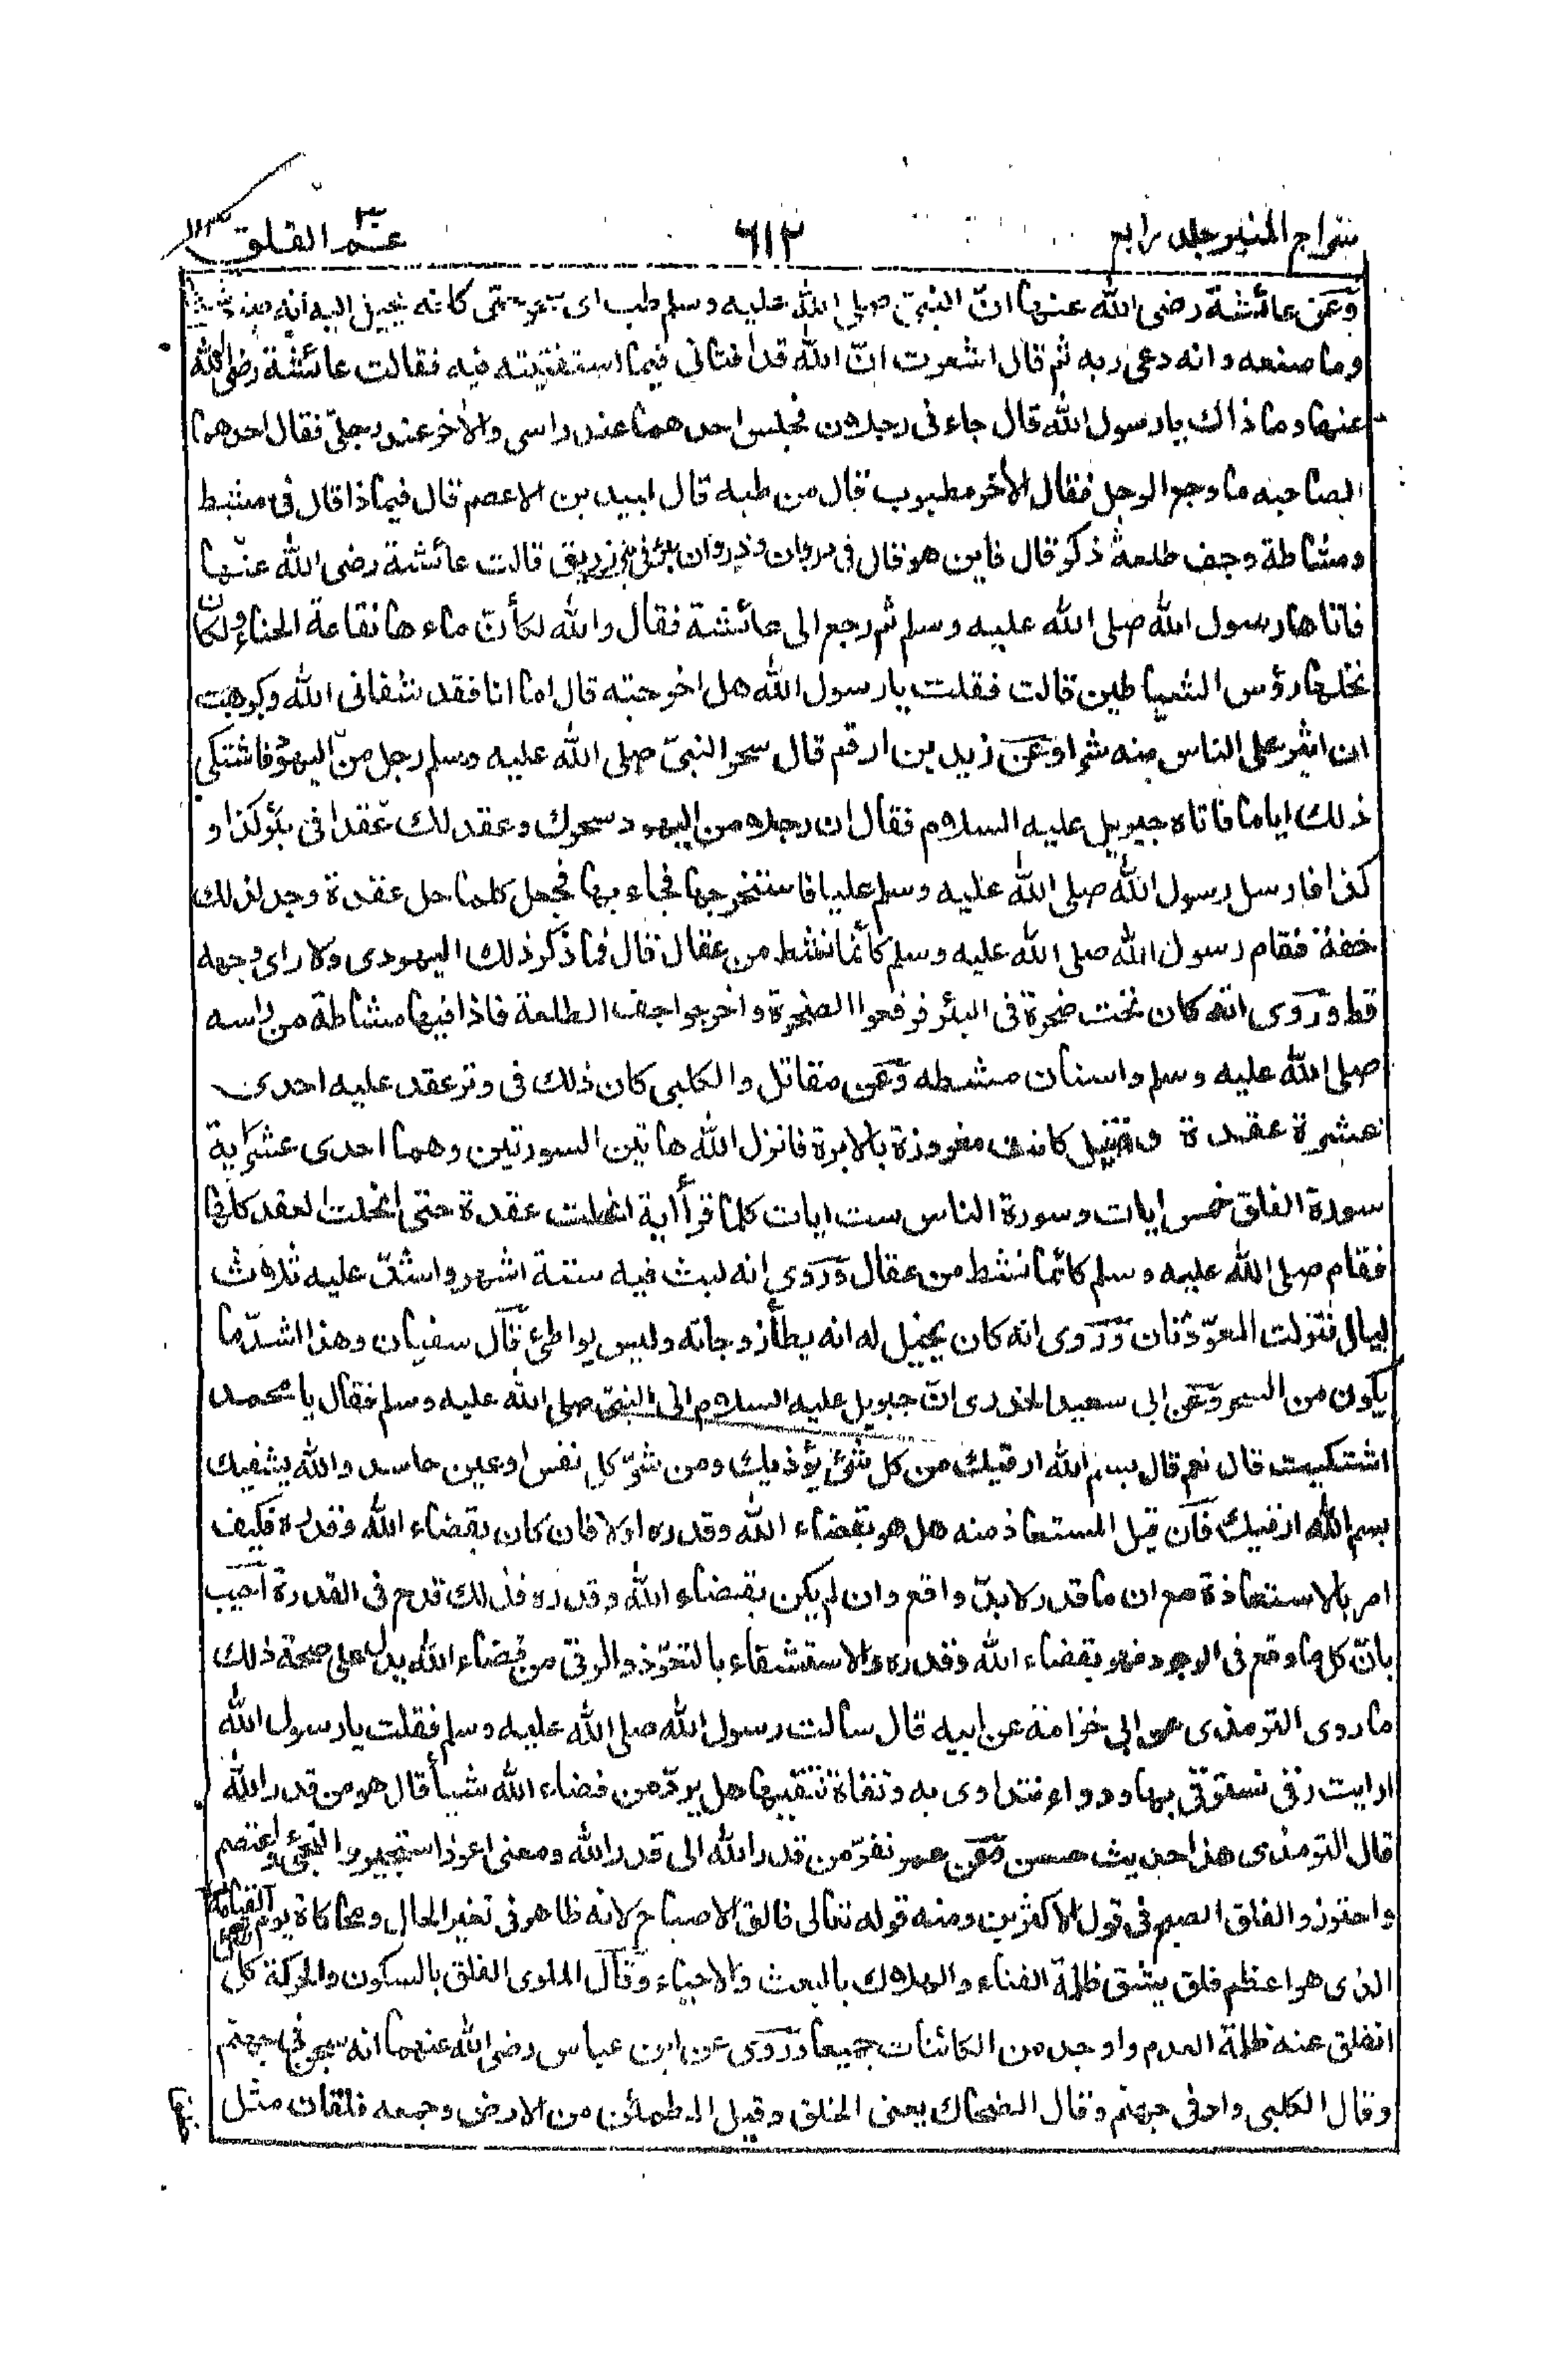 سراج المنير جلد رابع ٦١٢ عمّ الفلق ١١٣
وَعَن عائشة رضى الله عنها انّ النبيّ صلى الله عليه وسلم طب اى سحر حتى كانه يخيل اليه انه صنع شيئا
وما صنعه وانه دعى ربه ثم قال اشعرت انّ الله قد افتانى فيما استفتيته فيه فقالت عائشة رضى الله
عنها وما ذالك يارسول الله قال جاء نى رجلان فجلس احدهما عند راسى والاخر عند رجلىّ فقال احدهما
لصاحبه ما وجع الرجل فقال الاخر مطبوب قال من طبه قال لبيد بن الاعصم قال فيماذا قال فى مشط
ومشاطة وجف طلعة ذكر قال فاين هو قال فى ذروان وذروان بئر فى بنى زريق قالت عائشة رضى الله عنها
فاتاها رسول الله صلى الله عليه وسلم ثم رجع الى عائشة فقال والله لكأنّ ماءها نقاعة الحناء ولكأن
نخلها رؤس الشياطين قالت فقلت يا رسول الله هل اخرجته قال اما انا فقد شفانى الله وكرهت
ان اثير على الناس منه شرا وعَن زيد بن ارقم قال سحر النبيّ صلى الله عليه وسلم رجل من اليهود فاشتكى
ذلك اياما فاتاه جبريل عليه السلام فقال ان رجلا من اليهود سحرك وعقد لك عقدا فى بئر كذا و
كذا فارسل رسول الله صلى الله عليه وسلم عليا فاستخرجها فجاء بها فجعل كلما حل عقدة وجد لذلك
خفة فقام رسول الله صلى الله عليه وسلم كأنما نشط من عقال قال فما ذكر ذلك اليهودى ولا راى وجهه
قط وَرَوى انه كان تحت صخرة فى البئر فرفعوا الصخرة واخرجوا جف الطلعة فاذا فيها مشاطة من راسه
صلى الله عليه وسلم واسنان مشطه وَعَن مقاتل والكلبى كان ذلك فى وتر عقد عليه احدى
عشرة عقدة وقيل كانت مغروزة بالابرة فانزل الله هاتين السورتين وهما احدى عشراية
سورة الفلق خمس ايات وسورة الناس ست ايات كلما قرأ اية انحلت عقدة حتى انحلت العقد كلها
فقام صلى الله عليه وسلم كانما نشط من عقال وَرَوى انه لبث فيه ستة اشهر واشتدّ عليه ثلاث
ليال فنزلت المعوّذتان وَرَوى انه كان يخيل له انه يطأ زوجاته وليس بواطئ قال سفيان وهذا اشدّ ما
يكون من السحر وَعَن ابى سعيد الخدرى انّ جبريل عليه السلام اتى النبيّ صلى الله عليه وسلم فقال يا محمد
اشتكيت قال نعم قال بسم الله ارقيك من كل شئ يؤذيك ومن شرّ كل نفس او عين حاسد والله يشفيك
بسم الله ارقيك فَان قيل المستعاذ منه هل هو بقضاء الله وقدره اولا فان كان بقضاء الله وقدره فكيف
امر بالاستعاذة مع ان ما قدر لا بدّ واقع وان لم يكن بقضاء الله وقدره فذلك قدح فى القدرة اجَيب
بانّ كل ما وقع فى الوجود فهو بقضاء الله وقدره والاستشفاء بالتعوّذ والرقى من قضاء الله يدل على صحة ذلك
ما روى الترمذى عن ابى خزامة عن ابيه قال سالت رسول الله صلى الله عليه وسلم فقلت يا رسول الله
ارايت رقى نسترقى بها ودواء نتداوى به وتقاة نتقيها هل يردّ من قضاء الله شيأ قال هو من قدر الله
قال الترمذى هذا حديث حسن وَعَن عمر نفرّ من قدر الله الى قدر الله ومعنى اعوذ استجير والتجئ واعتصم
واحترز والفلق الصبح فى قول الاكثرين ومنه قوله تعالى فالق الاصباح لانه ظاهر فى تغير الحال ومحاكاة يوم القيامة
الذى هو اعظم فلق يشق ظلمة الفناء والهلاك بالبعث والاحياء وَقَال الملوى الفلق بالسكون والحركة كل
انفلق عنه ظلمة العدم واوجد من الكائنات جميعا وَرَوى عن ابن عباس رضى الله عنهما انه سجن فى جهنم
وقال الكلبى واد فى جهنم وقال الضحاك يعنى الخلق وقيل المطمئن من الارض وجمعه فلقان مثل